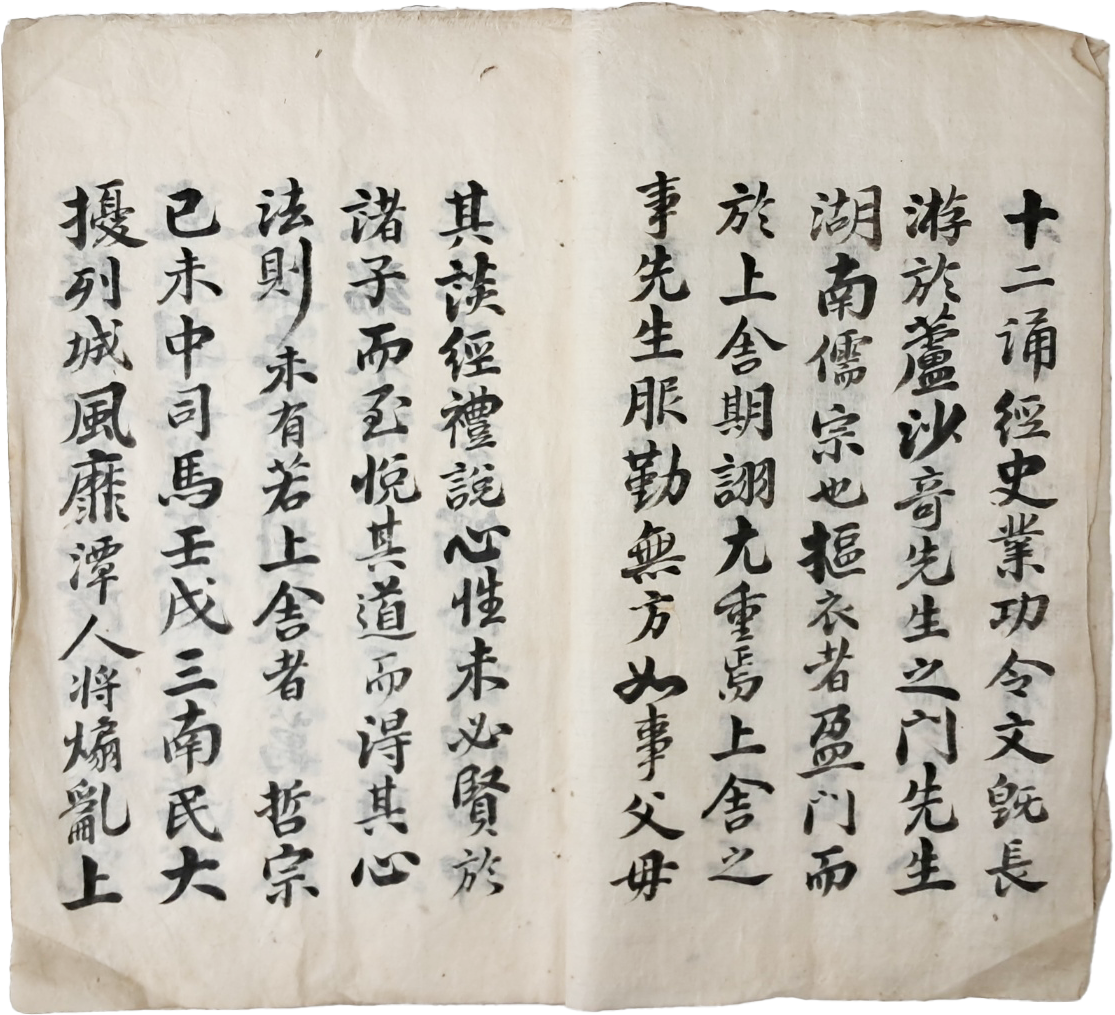 十二誦經史業功令文旣長
游於蘆沙奇先生之門先生
湖南儒宗也摳衣者盈門而
於上舍期詡尤重焉上舍之
事先生服勤無方如事父母
其談經禮說心性未必賢於
諸子而至悅其道而得其心
法則未有若上舍者
哲宗
己未中司馬壬戌三南民大
擾列城風靡潭人將煽亂上